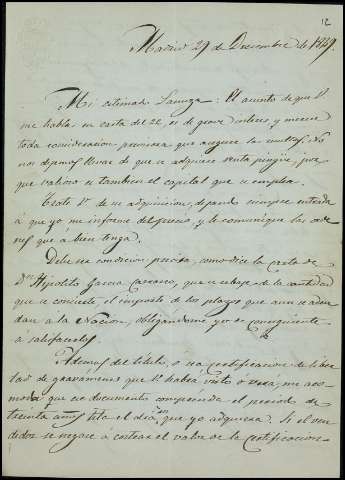 12
Madrid 29 de Diciembre de 1849.
Mi estimado Lanuza: El asunto de que V.
me habla en carta del 22, es de grave interes, y merece
toda consideracion, precisa que asegure las
nos dejemos llevar de que se adquiere renta pingüe, por
que valioso es tambien el capital que se emplea.
Trate V. de su adquisicion, dejando siempre entrada
á que yo me informe del precio, y le comunique las orde
nes que á bien tenga.
Debe ser condicion precisa, como dice la carta de
Dn. Hipolito Garcia Carrasco, que se rebaje de la cantidad
que se concierte, el importe de los plazos que aun se adeu
dan á la Nacion, obligandome yo de consiguiente
á satisfacerlos.
Ademas del titulo, o sea certificacion de liber
tad de gravamenes que V. habrá visto o verá, me aco
moda que ese documento comprenda el periodo de
treinta años hta el dia en que yo adquiera. Si el ven
dedor se negare á costear el valor de la certificacion